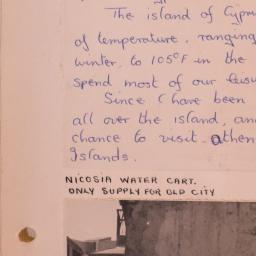 The island of Cypru
of temperature, ranging
winter, to 105°F in the
spend most of our leisu
Since I have been
all over the island, and
chance to visit Athen
Islands.
NICOSIA WATER CART.
ONLY SUPPLY FOR OLD CITY